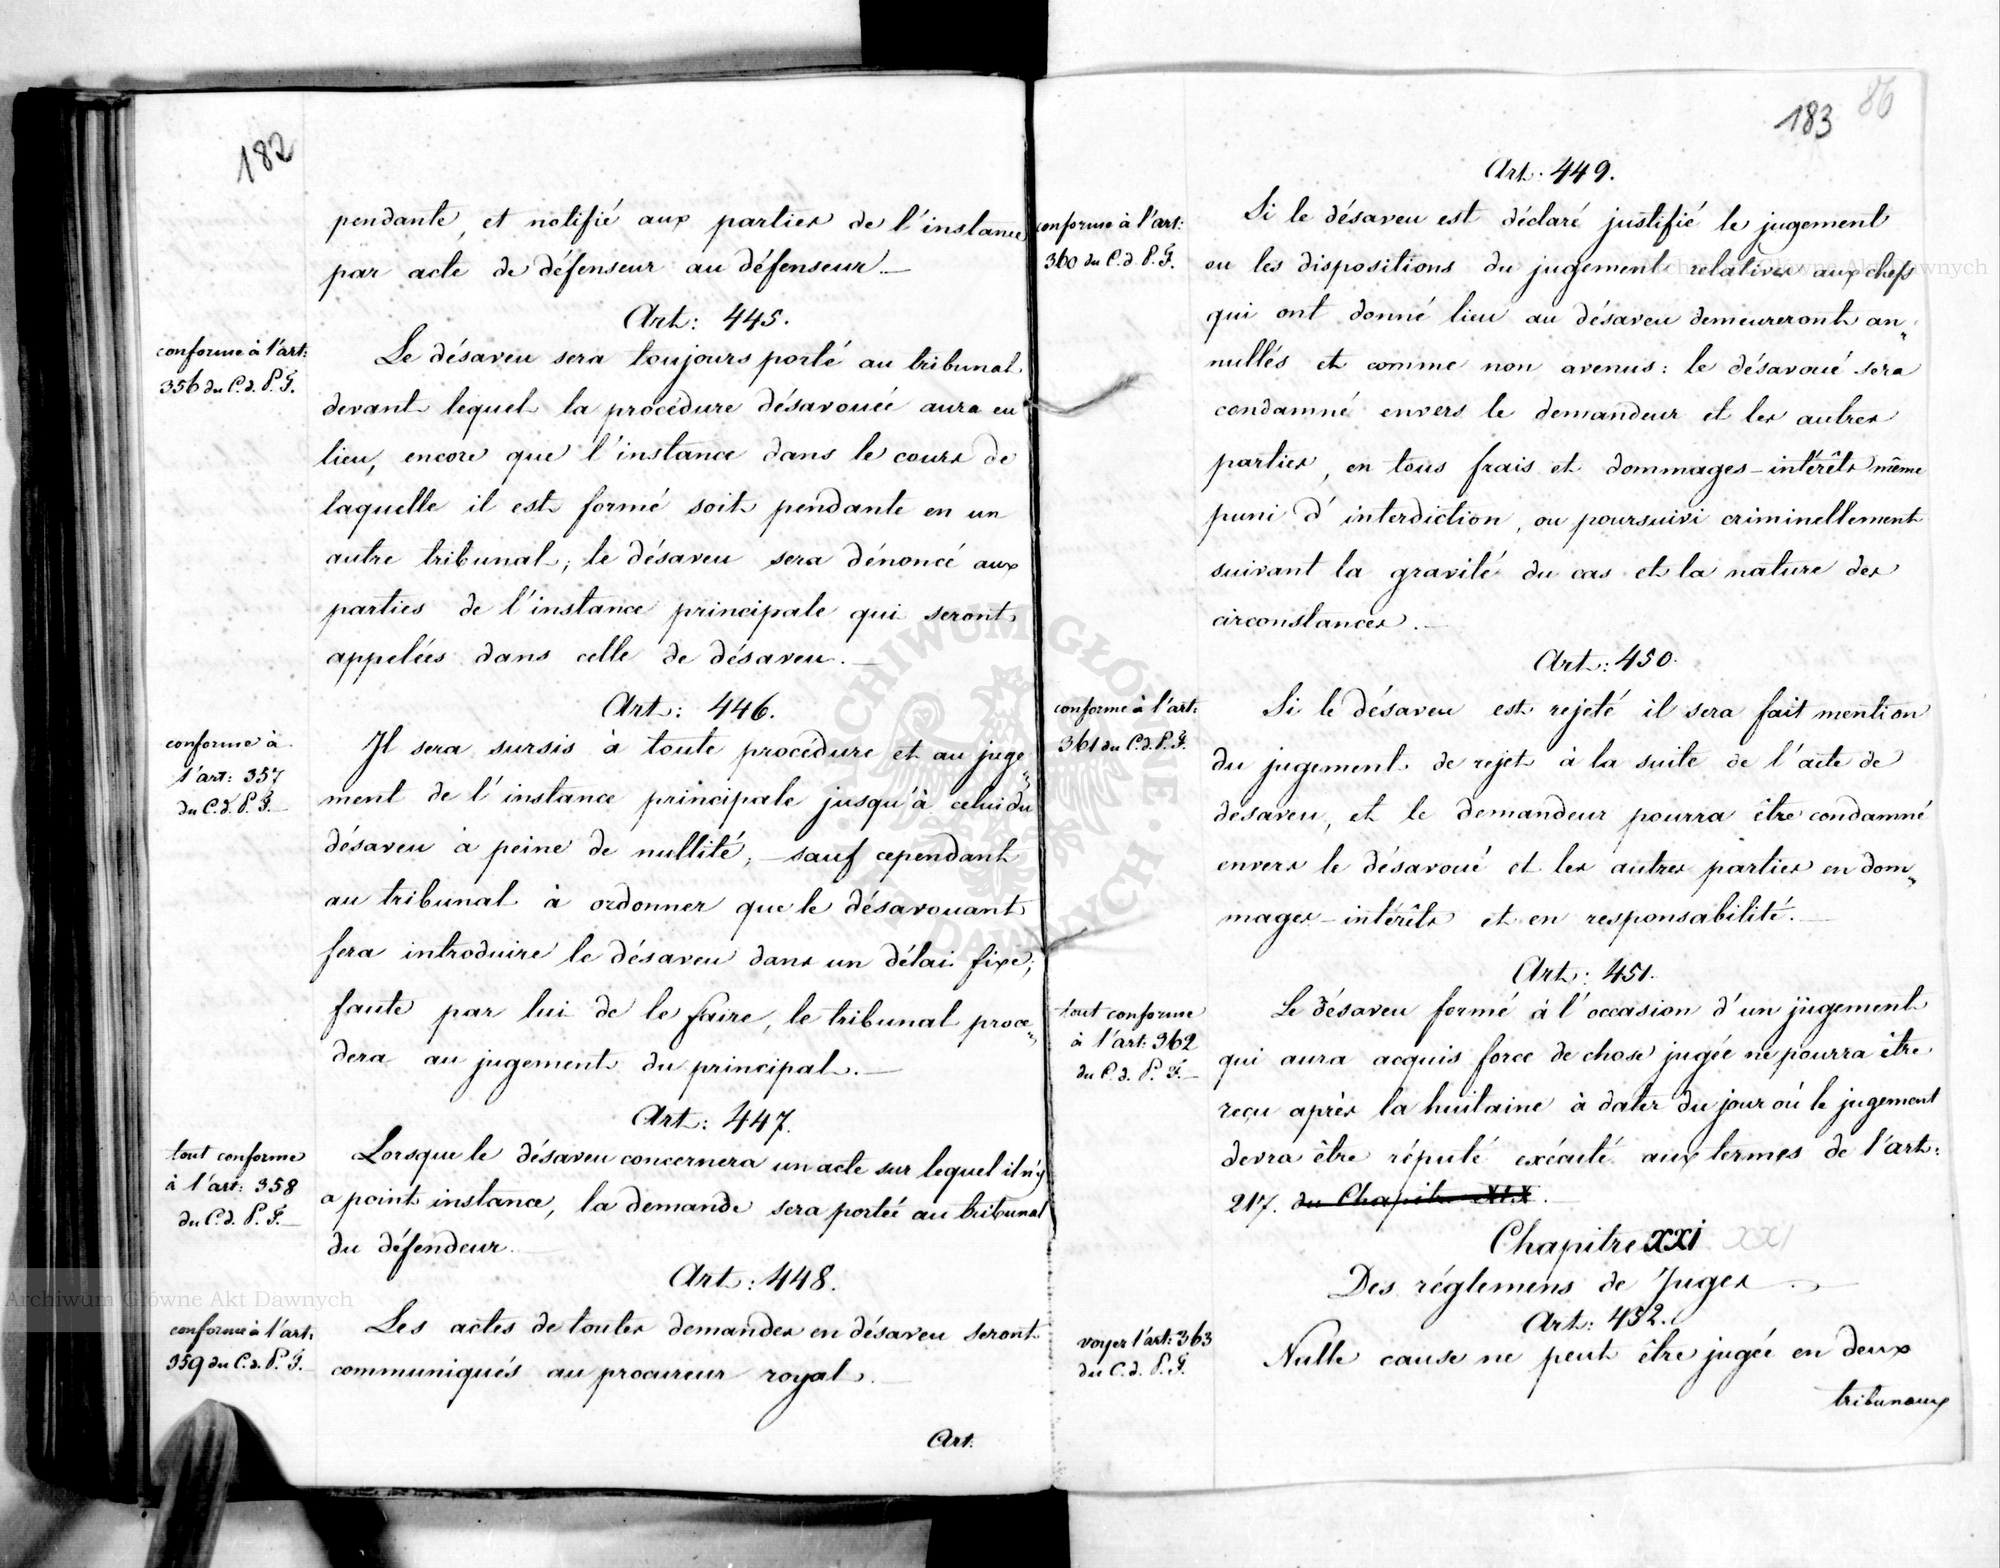 182
pendante, et notifié aux parties de l'instance
par acte de défenseur au défenseur.—
Art: 445.
conforme à l'art:
356 du C. d. P. F.
Le désaveu sera toujours porté au tribunal
devant lequel la procédure désavouée aura eu
lieu, encore que l'instance dans le cours de
laquelle il est formé soit pendante en un
autre tribunal; le désaveu sera dénoncé aux
parties de l'instance principale qui seront
appelées dans celle de désaveu.—
Art: 446.
conforme à
l'art: 357
du C. d. P. F.—
Il sera sursis à toute procédure et au juge„
ment de l'instance principale jusqu'à celui du
désaveu à peine de nullité; — sauf cependant
au tribunal à ordonner que le désavouant
fera introduire le désaveu dans un délai fixe;
faute par lui de le faire, le tribunal procé„
dera au jugement du principal.—
Art: 447.
tout conforme
à l'art: 358
du C. d. P. F.—
Lorsque le désaveu concernera un acte sur lequel il n'y
a point instance, la demande sera portée au tribunal
du défendeur.—
Art: 448.
conforme à l'art:
359 du C. d. P. F.—
Les actes de toutes demandes en désaveu seront
communiqués au procureur royal.—
Art.
183 86
Art. 449.
conforme à l'art:
360 du C. d. P. F.
Si le désaveu est déclaré justifié le jugement
ou les dispositions du jugement relatives aux chefs
qui ont donné lieu au désaveu demeureront an„
nullés et comme non avenus: le désavoué sera
condamné envers le demandeur et les autres
parties, en tous frais et dommages-intérêts même
puni d'interdiction, ou poursuivi criminellement
suivant la gravité du cas et la nature des
circonstances.—
Art: 450.
conforme à l'art:
361 du C. d. P. F.
Si le désaveu est rejeté il sera fait mention
du jugement de rejet à la suite de l'acte de
desaveu, et le demandeur pourra être condamné
envers le désavoué et les autres parties en dom„
mages-intérêts et en responsabilité.—
Art: 451.
tout conforme
à l'art: 362
du C. d. P. F.—
Le désaveu formé à l'occasion d'un jugement
qui aura acquis force de chose jugée ne pourra être
reçu après la huitaine à dater du jour où le jugement
devra être réputé exécuté aux termes de l'art:
217. du Chapitre XIX.—
Chapitre XXI XXI
Des réglemens de Juges.—
Art: 452.
voyez l'art: 363
du C. d. P. F.
Nulle cause ne peut être jugée en deux
tribunaux
ARCHIWUM GŁÓWNE AKT DAWNYCH
Archiwum Główne Akt Dawnych
Archiwum Główne Akt Dawnych